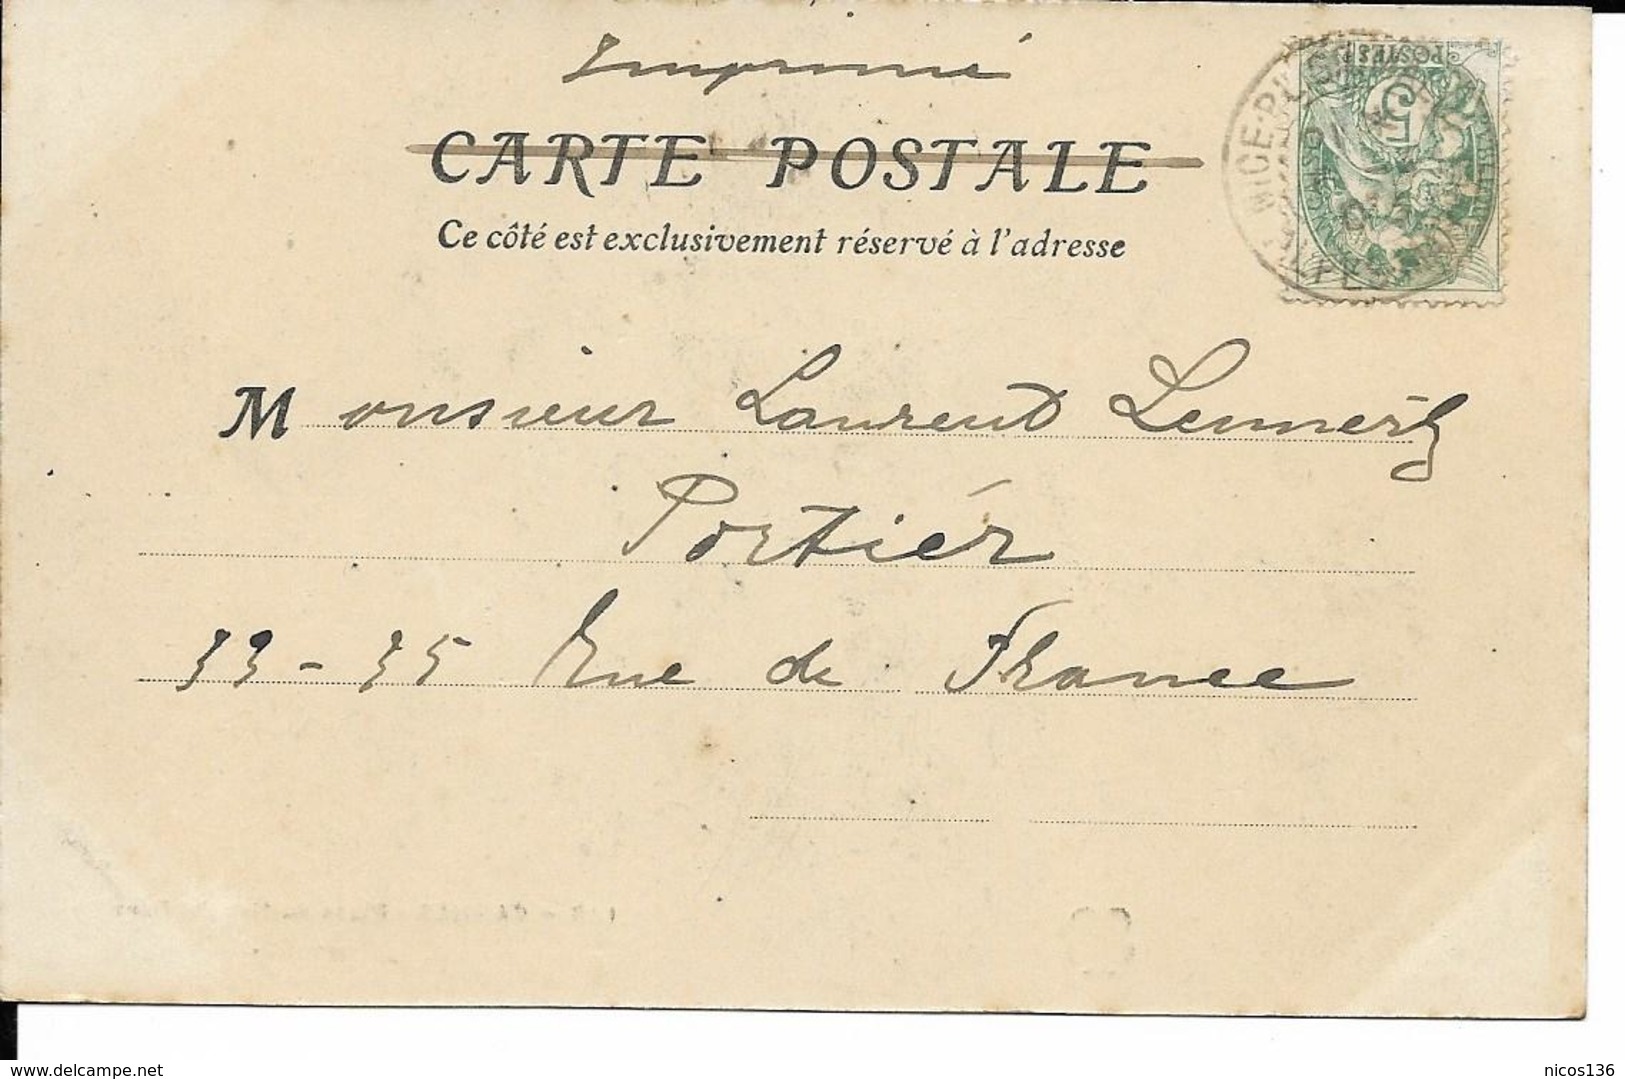 Imprimé
CARTE POSTALE
Ce côté est exclusivement réservé à l'adresse
POSTES
5
Monsieur Laurent Lennertz
Portiér
33-35 Rue de France
nicos136